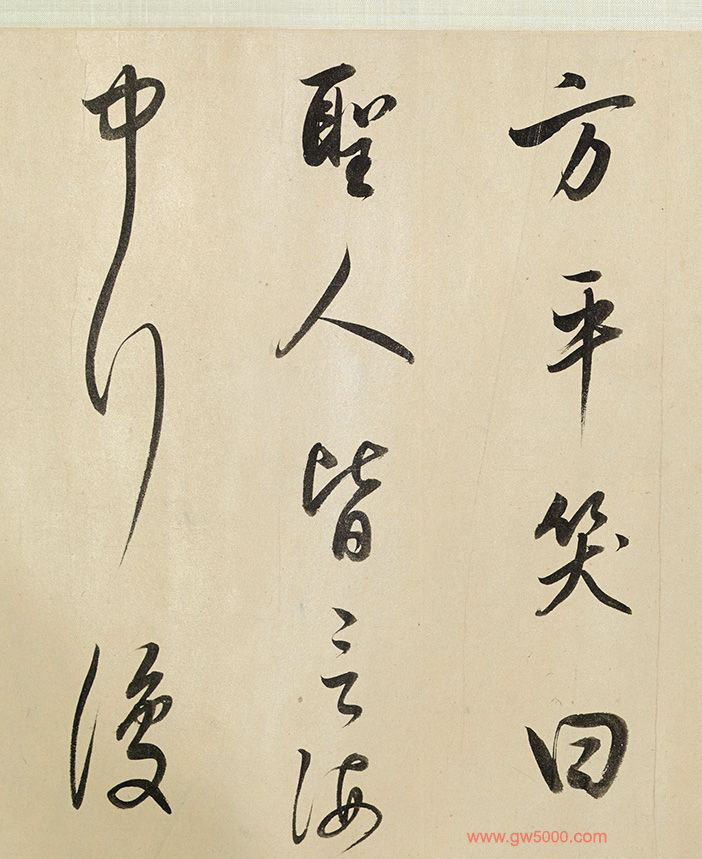 方平笑曰
聖人皆言海
中行復
www.gw5000.com